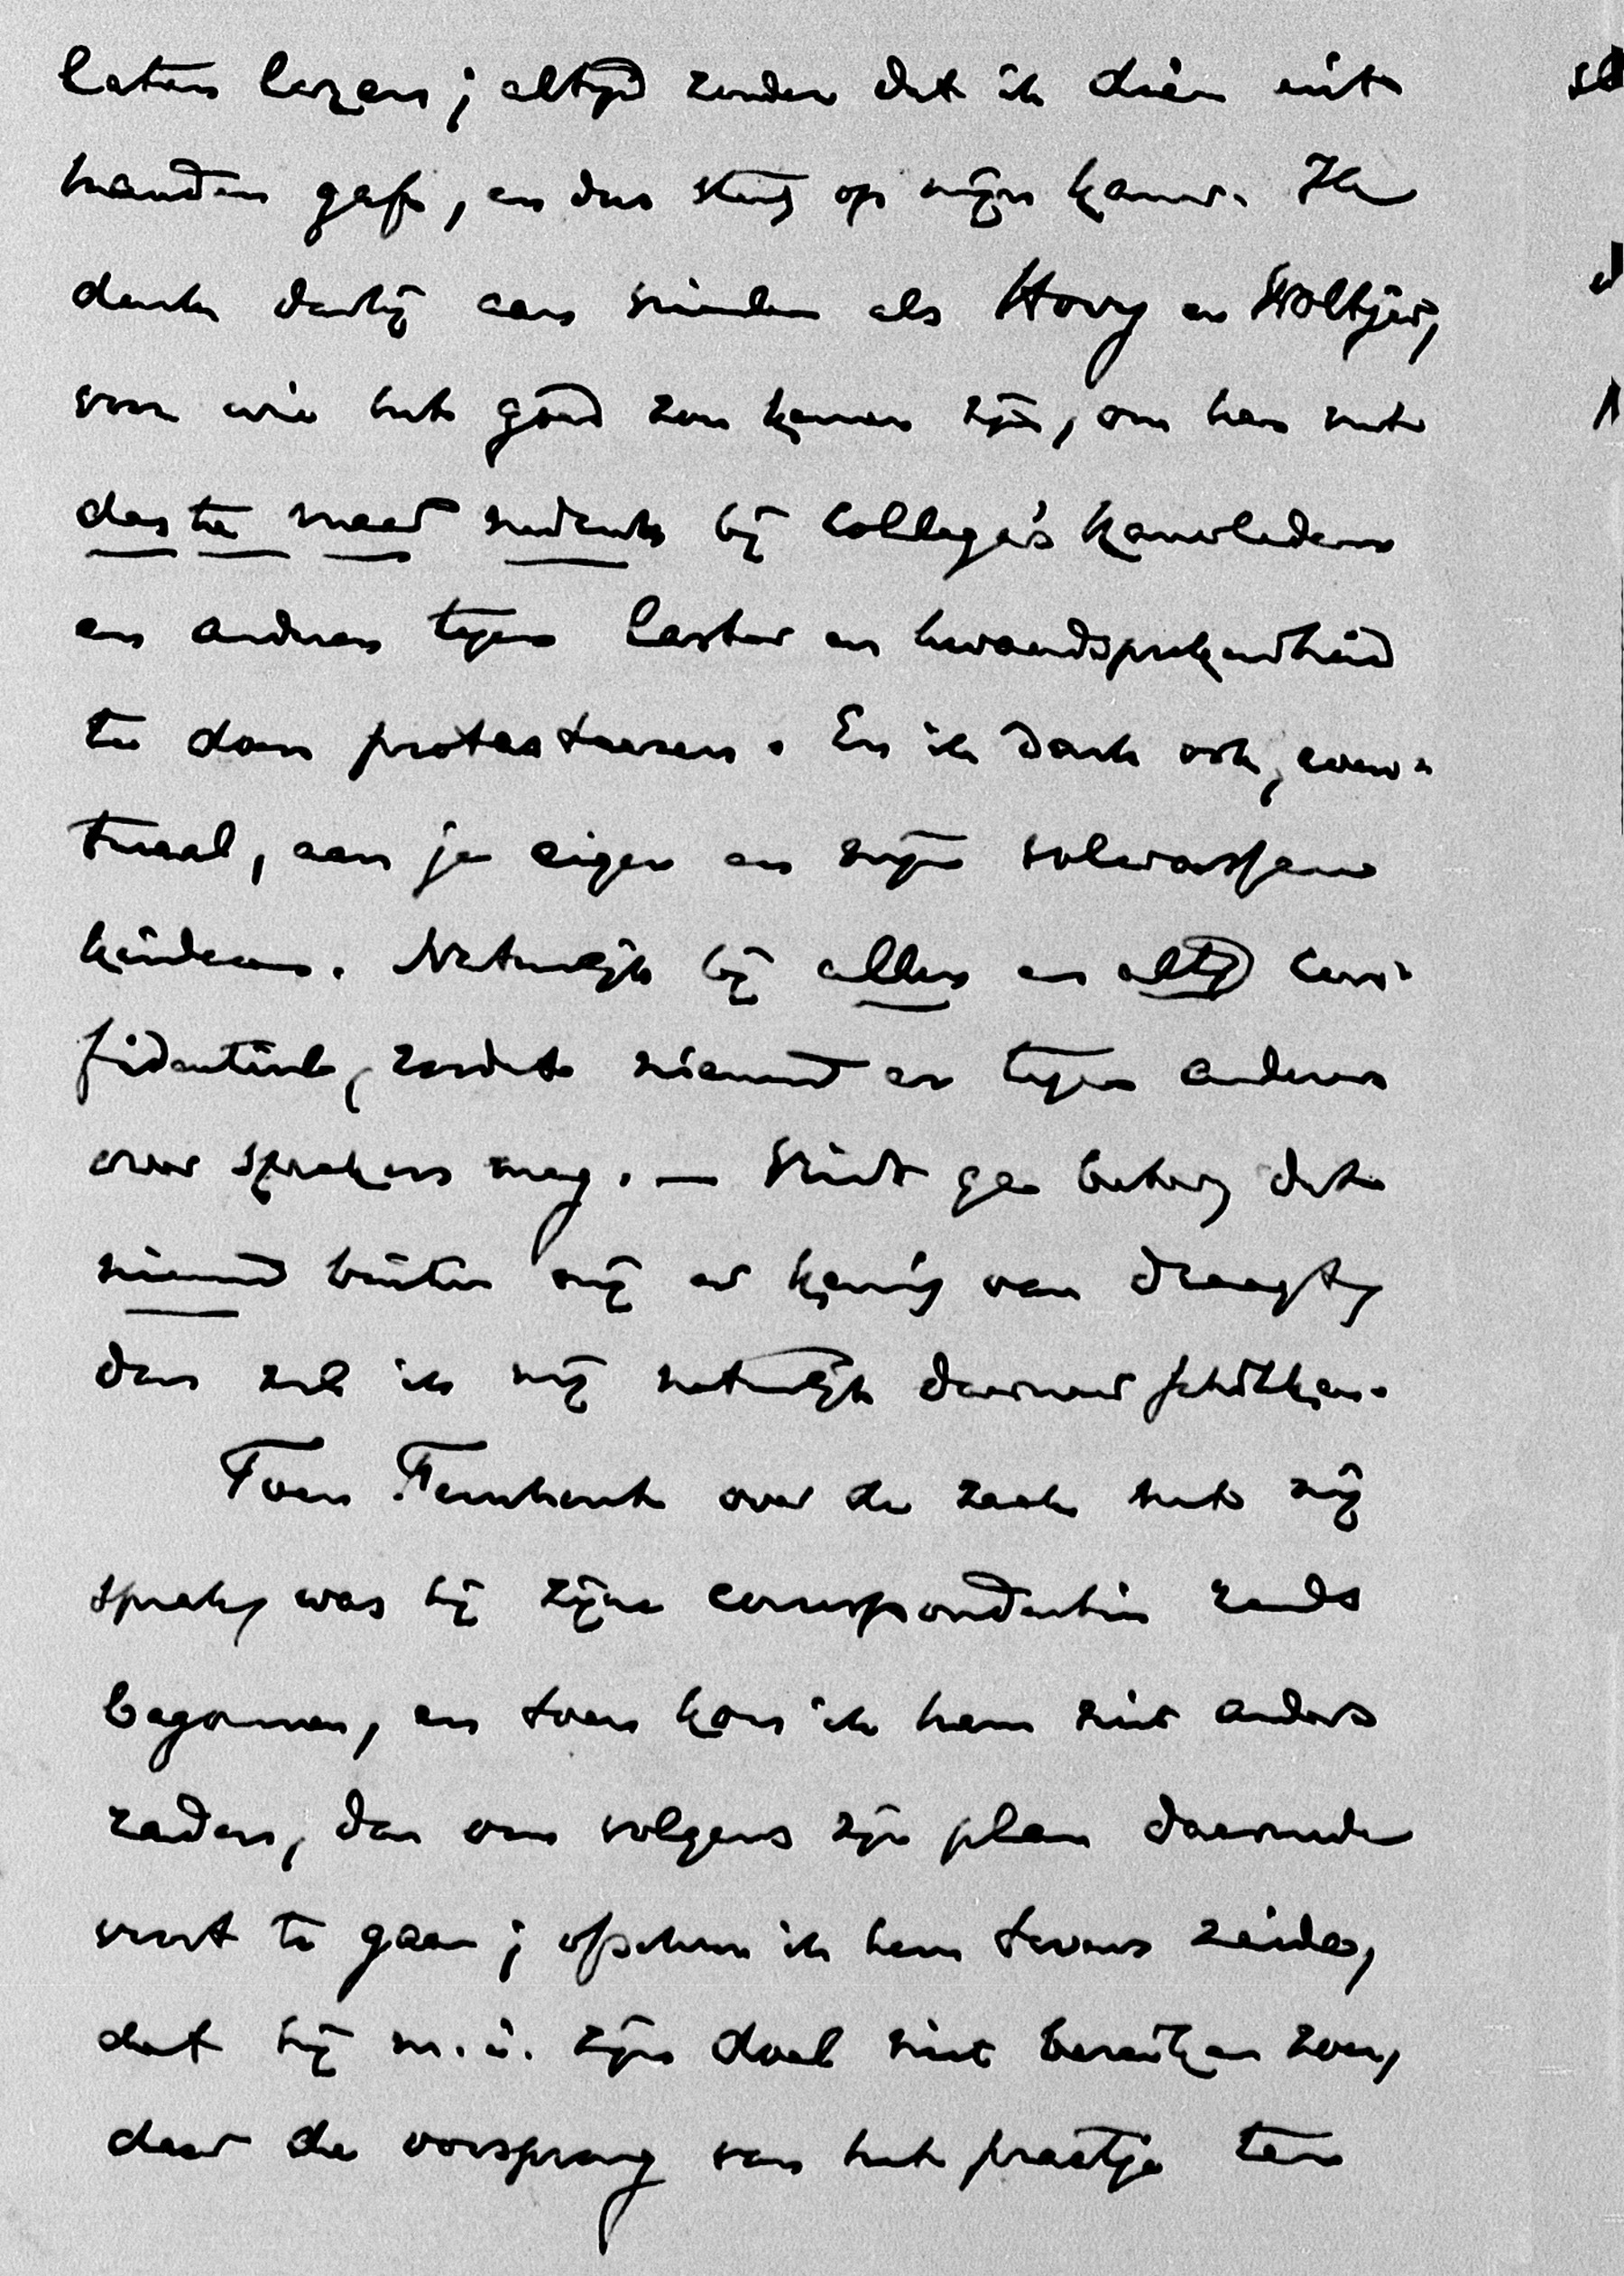 laten lezen; altijd zonder dat ik dien uit
handen gaf, en dus steeds op mijn kamer. Ik
denk daarbij aan vrienden als Hovy en Woltjer,
voor wie het goed zou kunnen zijn, om hen met
des te meer nadruk bij collega's kamerleden
en anderen tegen laster en kwaadsprekendheid
te doen protesteeren. En ik denk ook, even-
tueel, aan je eigen en mijn volwassen
kinderen. Natuurlijk bij allen en altijd con-
fidentieel, zoodat niemand er tegen anderen
over spreken mag. — Vindt ge beter, dat
niemand buiten mij er kennis van draagt,
dan zal ik mij natuurlijk daarnaar schikken.
Toen Fernhout over de zaak met mij
sprak, was hij zijne correspondentie reeds
begonnen, en toen kon ik hem niet anders
raden, dan om volgens zijn plan daarmede
voort te gaan; ofschoon ik hem tevens zeide,
dat hij m.i. zijn doel niet bereiken zou,
daar de oorsprong van het praatje ten